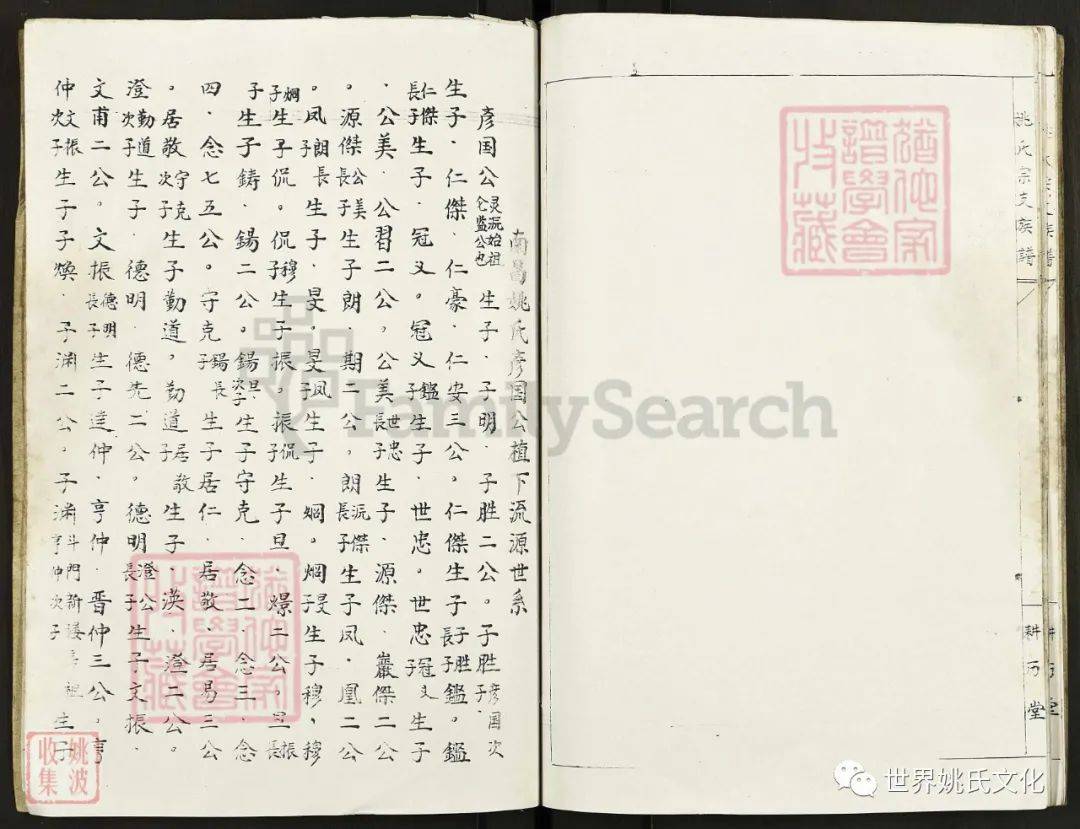 南昌姚氏彦国公植下流源世系
彦国公灵沅始祖仑监公也生子·子明·子胜二公。子胜彦国次子
生子·仁傑·仁豪·仁安三公。仁傑子胜长子生子鑑。鑑
仁傑長子生子·冠义。冠义鑑子生子·世忠。世忠冠义子生子
·公美·公習二公。公美世忠長子生子·源傑·巖傑二公
·源傑公美長子生子朗·期二公。朗沅傑長子生子凤·凰二公
。凤朗長子生子·旻。旻凤子生子·烱。烱旻子生子穆、穆
烱子生子侃。侃穆子生子振。振侃子生子旦·憬二公。旦振長
子生子鋳·錫二公。錫旦次子生子守克·念二·念三·念
四·念七五公。守克錫長子生子居仁·居敬·居易三公
。居敬守克次子生子勤道。勤道居敬子生子·渶·澄二公。
澄勤道次子生子·德明·德先二公。德明澄公長子生子文振·
文甫二公。文振德明長子生子達仲·亨仲·晋仲三公。亨
仲文振次子生子子焕·子渊二公。子渊亨仲次子斗門新祖生子
姚氏宗支族譜
耕历堂
猶他家譜學會收藏
猶他家譜學會收藏
姚波收集
FamilySearch
世界姚氏文化